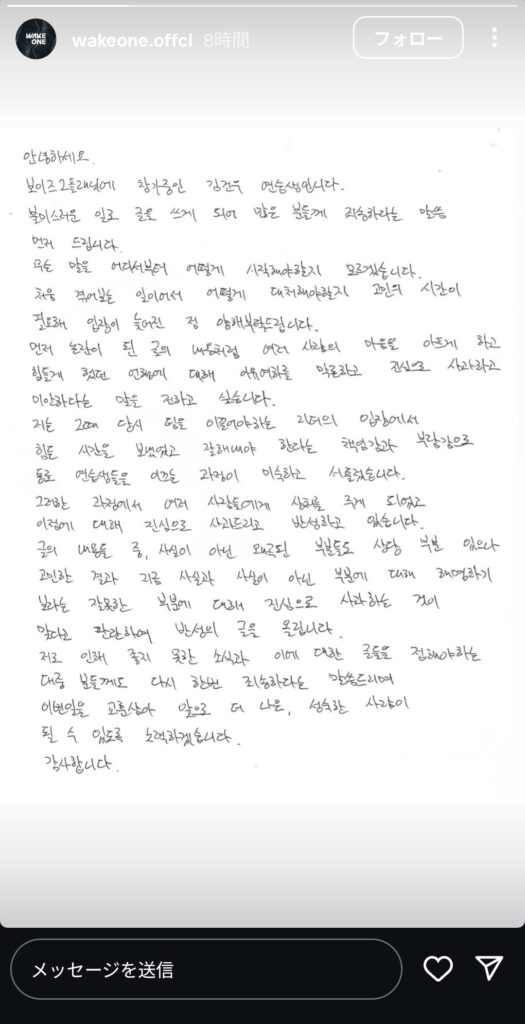 WAKE
ONE
wakeone.offcl 8時間
フォロー
안녕하세요.
보이즈2플래닛에 참가중인 김건우 연습생입니다.
불미스러운 일로 글을 쓰게 되어 많은 분들께 죄송하다는 말씀
먼저 드립니다.
무슨 말을 어디서부터 어떻게 시작해야할지 모르겠습니다.
처음 겪어보는 일이어서 어떻게 대처해야할지 고민의 시간이
필요해 입장이 늦어진 점 양해부탁드립니다.
먼저 논란이 된 글의 내용처럼 여러 사람의 마음을 아프게 하고
힘들게 했던 언행에 대해 이유여하를 막론하고 진심으로 사과하고
미안하다는 말을 전하고 싶습니다.
저는 그때 당시 팀을 이끌어야하는 리더의 입장에서
힘든 시간을 보냈었고 잘해내야 한다는 책임감과 부담감으로
동료 연습생들을 이끄는 과정이 미숙하고 서툴렀습니다.
그러한 과정에서 여러 사람들에게 상처를 주게 되었고
이점에 대해 진심으로 사과드리고 반성하고 있습니다.
글의 내용들 중, 사실이 아닌 왜곡된 부분들도 상당 부분 있으나
고민한 결과 지금 사실과 사실이 아닌 부분에 대해 해명하기
보다는 잘못한 부분에 대해 진심으로 사과하는 것이
맞다고 판단하여 반성의 글을 올립니다.
저로 인해 좋지 못한 소식과 이에 대한 글들을 접해야하는
대중 분들께도 다시 한번 죄송하다는 말씀드리며
이번일을 교훈삼아 앞으로 더 나은, 성숙한 사람이
될 수 있도록 노력하겠습니다.
감사합니다.
メッセージを送信